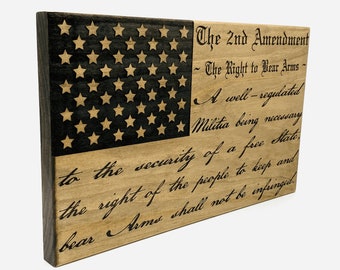 The 2nd Amendment
~ The Right to Bear Arms ~
A well-regulated
Militia being necessary
to the security of a free State,
the right of the people to keep and
bear Arms shall not be infringed.